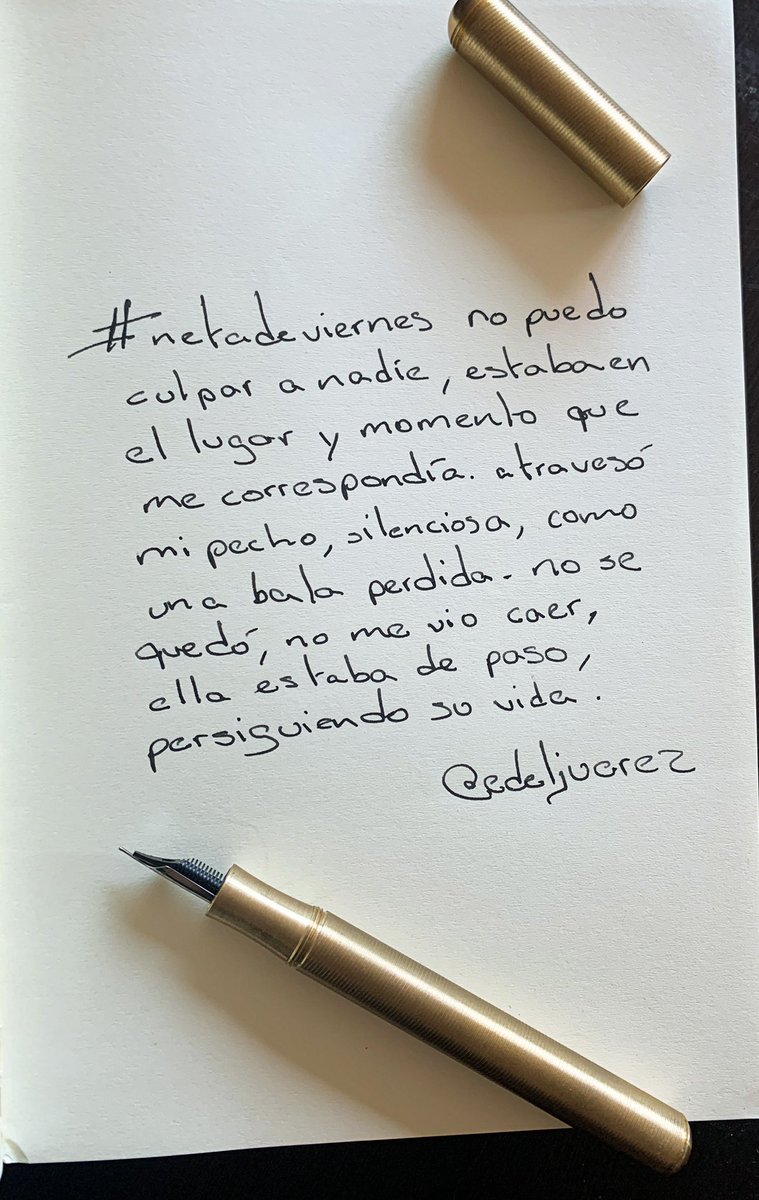 #netadeviernes no puedo
culpar a nadie, estaba en
el lugar y momento que
me correspondía. atravesó
mi pecho, silenciosa, como
una bala perdida. no se
quedó, no me vio caer,
ella estaba de paso,
persiguiendo su vida.
@edeljuarez